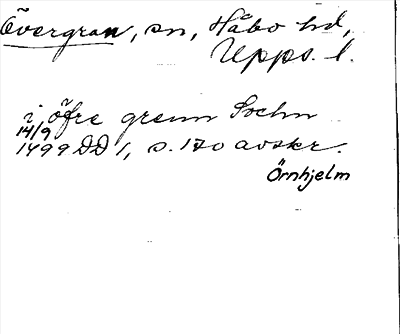 Övergran, sn, Håbo hd,
Upps. l.
i öfre grenn Sochn
14/9
1499 DD 1, s. 170 avskr.
Örnhjelm